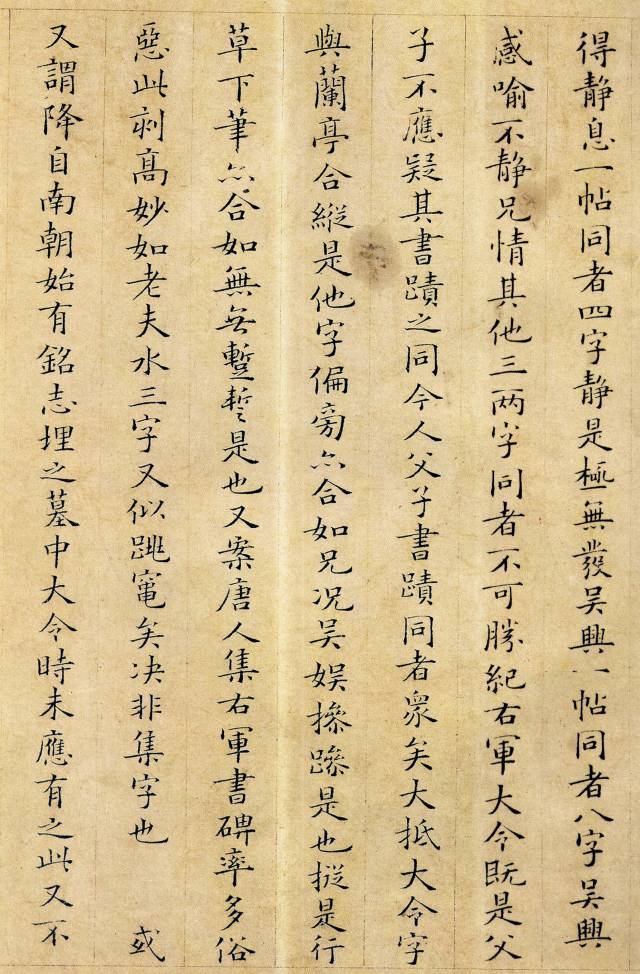 得靜息一帖同者四字靜是極無發吴興一帖同者八字吴興
感喻不靜兄情其他三两字同者不可勝紀右軍大令既是父
子不應疑其書蹟之同今人父子書蹟同者衆矣大抵大令字
與蘭亭合縱是他字偏旁亦合如兄况吴娱摻蹤是也摐是行
草下筆亦合如無无蹔誓是也又案唐人集右軍書碑率多俗
惡此刻高妙如老夫水三字又似跳竄矣决非集字也 或
又謂降自南朝始有銘志埋之墓中大令時未應有之此又不